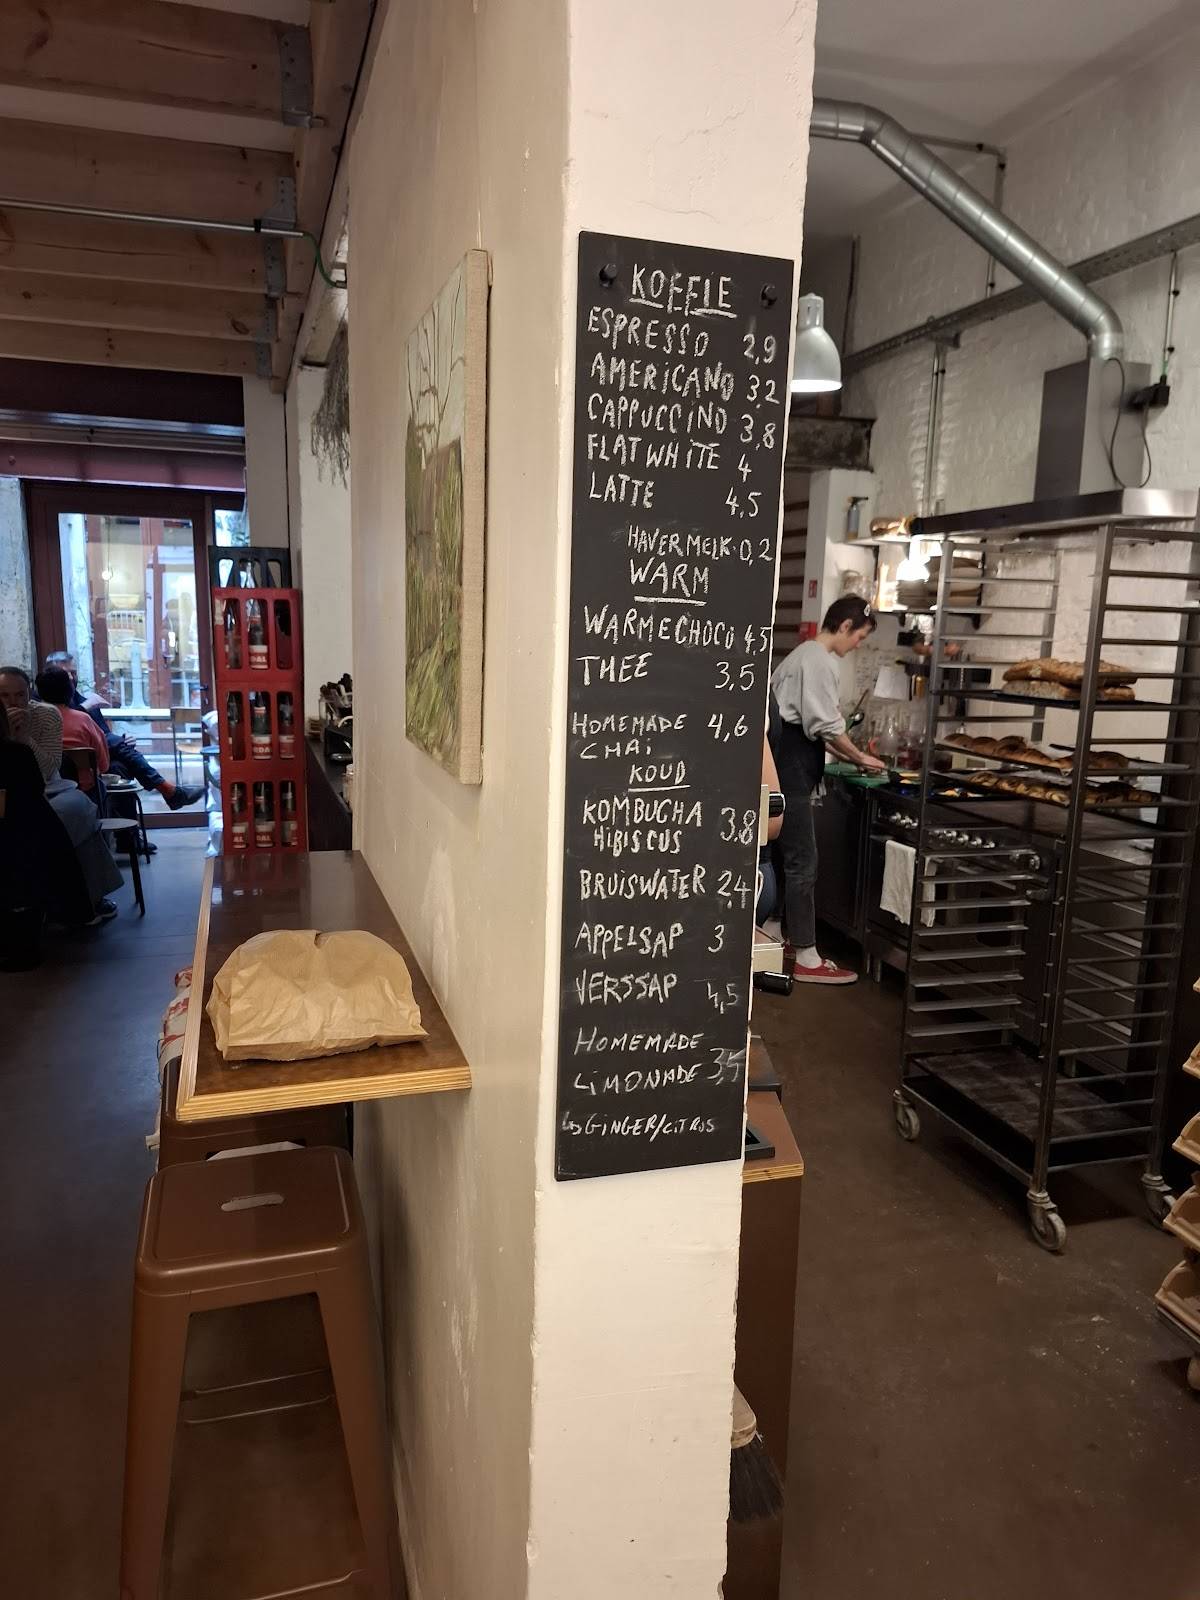 KOFFIE
ESPRESSO 2,9
AMERICANO 3,2
CAPPUCCINO 3,8
FLAT WHITE 4
LATTE 4,5
HAVERMELK 0,2
WARM
WARME CHOCO 4,5
THEE 3,5
HOMEMADE 4,6
CHAI
KOUD
KOMBUCHA 3.8
HIBISCUS
BRUISWATER 2,4
APPELSAP 3
VERSSAP 4,5
HOMEMADE
LIMONADE 3,5
GINGER/CITRUS